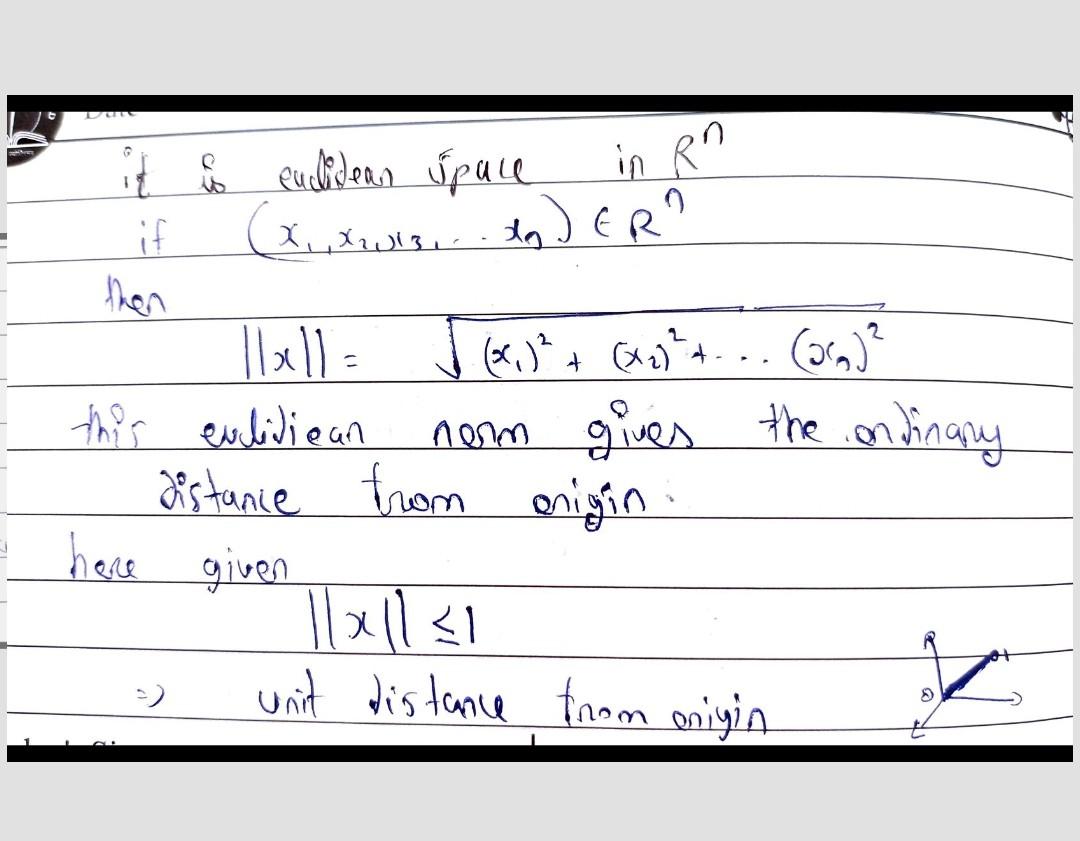 it is euclidean space in Rⁿ
if (x₁, x₂, x₃, ... xₙ) ∈ Rⁿ
then
||x|| = √(x₁)² + (x₂)² + ... (xₙ)²
this euclidiean norm gives the ordinary
distance from origin.
here given
||x|| ≤ 1
=> unit distance from origin